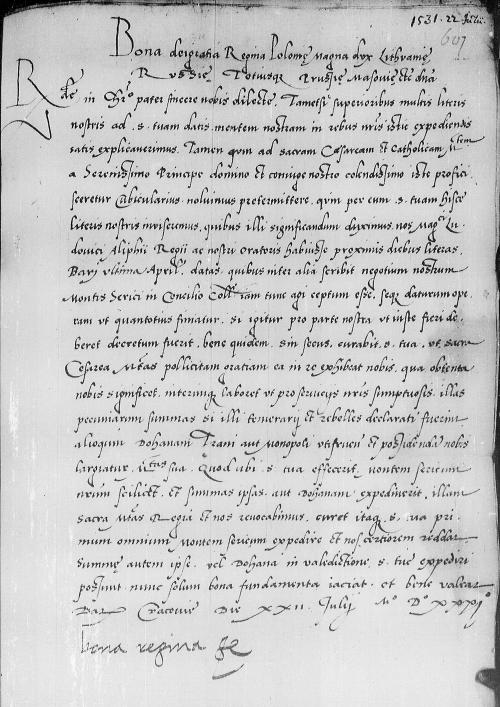 1531. 22 Julii.
607
Bona dei gratia Regina Polonię Magna dux Lithvanię
Rvssię Totiusq Prussię Masovię etc dna
Rde in Chro pater sincere nobis dilecte. Tametsi superioribus multis literis
nostris ad .s. tuam datis mentem nostram in rebus nris istic expediendis
satis explicaverimus. Tamen qum ad sacram Cesaream et Catholicam Mtem
a Serenissimo Principe domino et coniuge nostro colendissimo iste profici
sceretur Cubicularius. noluimus pretermittere. qvin per eum .s. tuam hisce
literis nostris inviseremus, quibus illi significandum duximus. nos Magci Lu
dovici Aliphii Regii ac nostri oratoris habuisse proximis diebus literas.
Barÿ vltima Aprilis datas, quibus inter alia scribit negotium nostrum
Montis Serici in Concilio Coll iam tunc agi ceptum esse, seq daturum ope
ram vt quantotius finiatur. si igitur pro parte nostra vt iuste fieri de
beret decretum fuerit, bene quidem. sin secus, curabit .s. tua, vt sacra
Cesarea Mtas pollicitam gratiam ea in re exhibeat nobis, qua obtenta
nobis significet, interimq laboret vt pro servicijs nris sumptuosis. illas
pecuniarum summas si illi temerarij et rebelles declarati fuerint
alioqum Dohanam Trani aut Monopoli vtifruen et possidenda nobis
largiatur. Mtas sua. Quod ubi .s. tua effecerit, montem sericum
nrum scilicet, et summas ipsas. aut Dohanam expediverit, illam
sacra Mtas Regia et nos revocabimus, curet itaq .s. tua pri
mum omnium Montem sericum expedire et nos certiorem reddat
summę autem ipse. vel Dohana in valedictione .s. tue expediri
possunt. nunc solum bona fundamenta iaciat. et bene valeat
Dat Cracovie Die XXII. Julij Mo Do XXXIo
bona regina